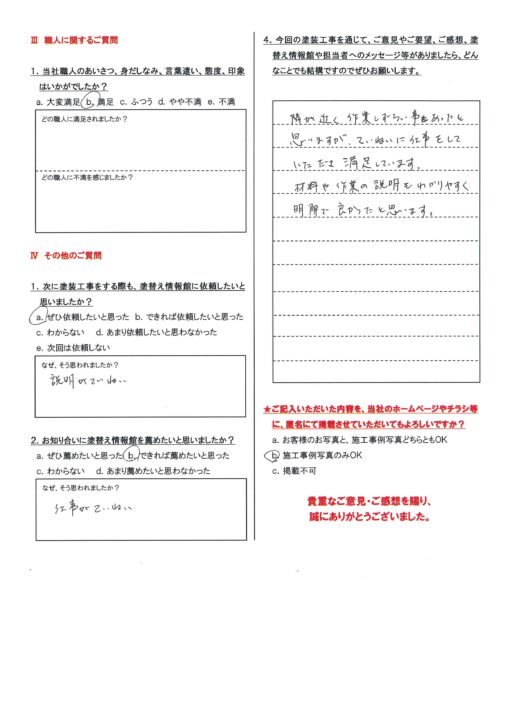 Ⅲ 職人に関するご質問
1. 当社職人のあいさつ、身だしなみ、言葉遣い、態度、印象
はいかがでしたか？
a. 大変満足 b. 満足 c. ふつう d. やや不満 e. 不満
どの職人に満足されましたか？
どの職人に不満を感じましたか？
Ⅳ その他のご質問
1. 次に塗装工事をする際も、塗替え情報館に依頼したいと
思いましたか？
a. ぜひ依頼したいと思った b. できれば依頼したいと思った
c. わからない d. あまり依頼したいと思わなかった
e. 次回は依頼しない
なぜ、そう思われましたか？
説明がていねい
2. お知り合いに塗替え情報館を薦めたいと思いましたか？
a. ぜひ薦めたいと思った b. できれば薦めたいと思った
c. わからない d. あまり薦めたいと思わなかった
なぜ、そう思われましたか？
仕事がていねい
4. 今回の塗装工事を通じて、ご意見やご要望、ご感想、塗
替え情報館や担当者へのメッセージ等がありましたら、どん
なことでも結構ですのでぜひお願いします。
隣が近く 作業しずらい事もあったと
思いますが、ていねいに仕事をして
いただき 満足しています。
材料や作業の説明もわかりやすく
明朗で良かったと思います。
★ご記入いただいた内容を、当社のホームページやチラシ等
に、匿名にて掲載させていただいてもよろしいですか？
a. お客様のお写真と、施工事例写真どちらともOK
b. 施工事例写真のみOK
c. 掲載不可
貴重なご意見・ご感想を賜り、
誠にありがとうございました。